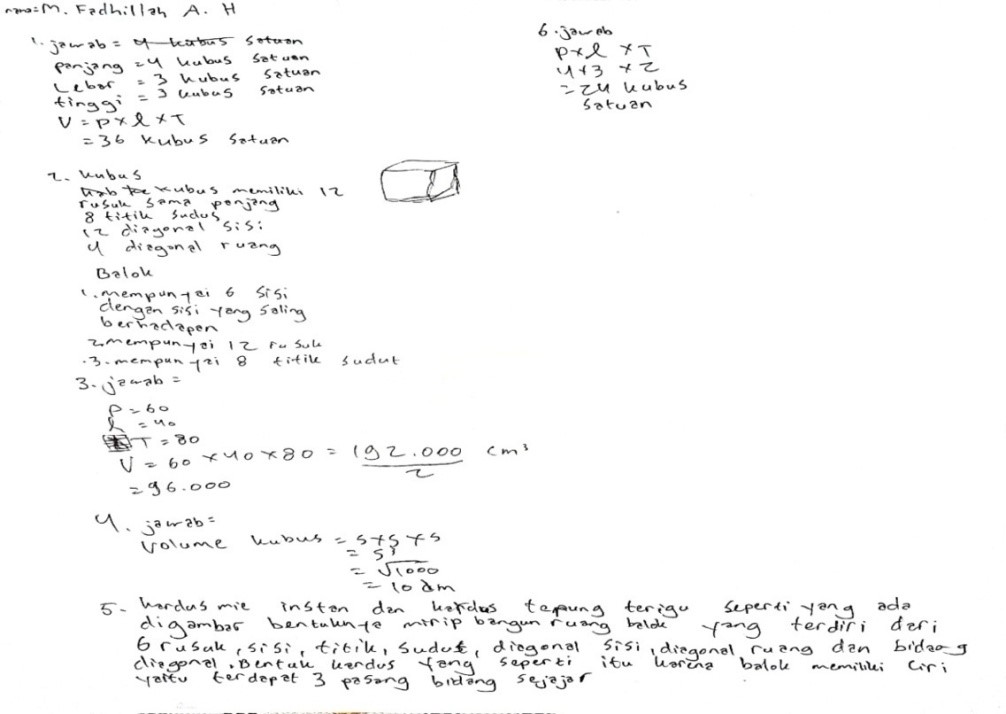 nama=M. Fadhillah A. H
1. jawab = 4 kubus satuan
panjang = 4 kubus satuan
Lebar = 3 kubus satuan
tinggi = 3 kubus satuan
V = p x l x T
= 36 kubus satuan
2. kubus
kubus memiliki 12
rusuk sama panjang
8 titik sudus
12 diagonal sisi
4 diagonal ruang
Balok
1. mempunyai 6 sisi
dengan sisi yang saling
berhadapan
2. mempunyai 12 rusuk
.3. mempunyai 8 titik sudut
3. jawab =
P = 60
l = 40
T = 80
V = 60 x 40 x 80 = 192.000 cm³
2
= 96.000
4. jawab =
Volume kubus = s x s x s
= s³
= √1000
= 10 dm
5. kardus mie instan dan kardus tepung terigu seperti yang ada
digambar bentuknya mirip bangun ruang balok yang terdiri dari
6 rusuk, sisi, titik, sudut, diagonal sisi, diagonal ruang dan bidang
diagonal. Bentuk kardus yang seperti itu karena balok memiliki ciri
yaitu terdapat 3 pasang bidang sejajar
6. jawab
P x l x T
4 x 3 x 2
= 24 kubus
satuan